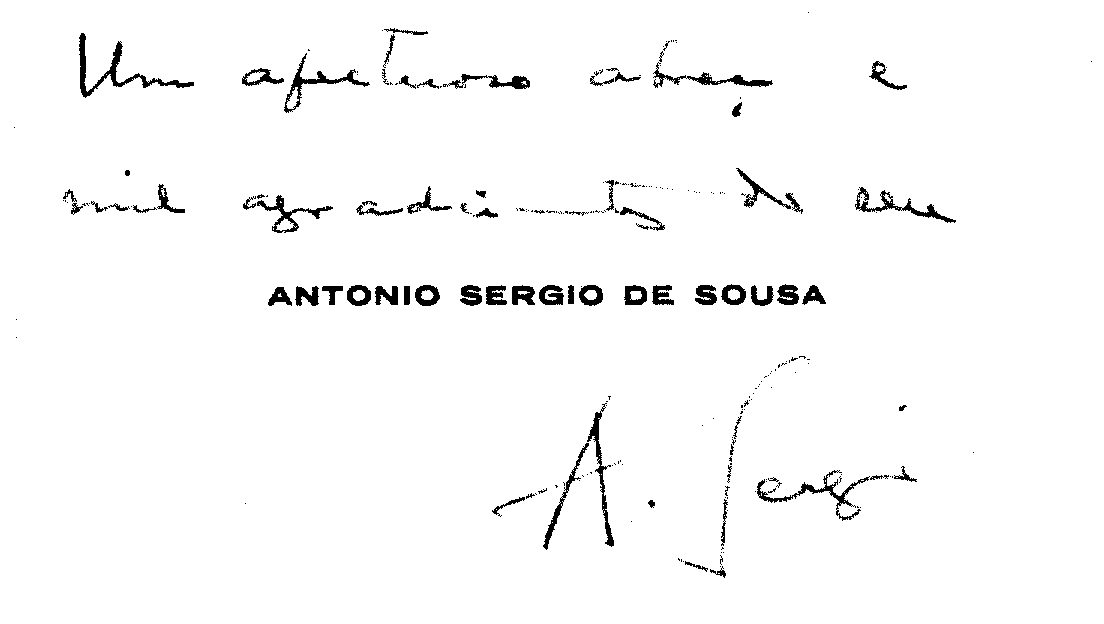 Um afectuoso abraço e
mil agradecimentos do seu
ANTONIO SERGIO DE SOUSA
A. Sergio